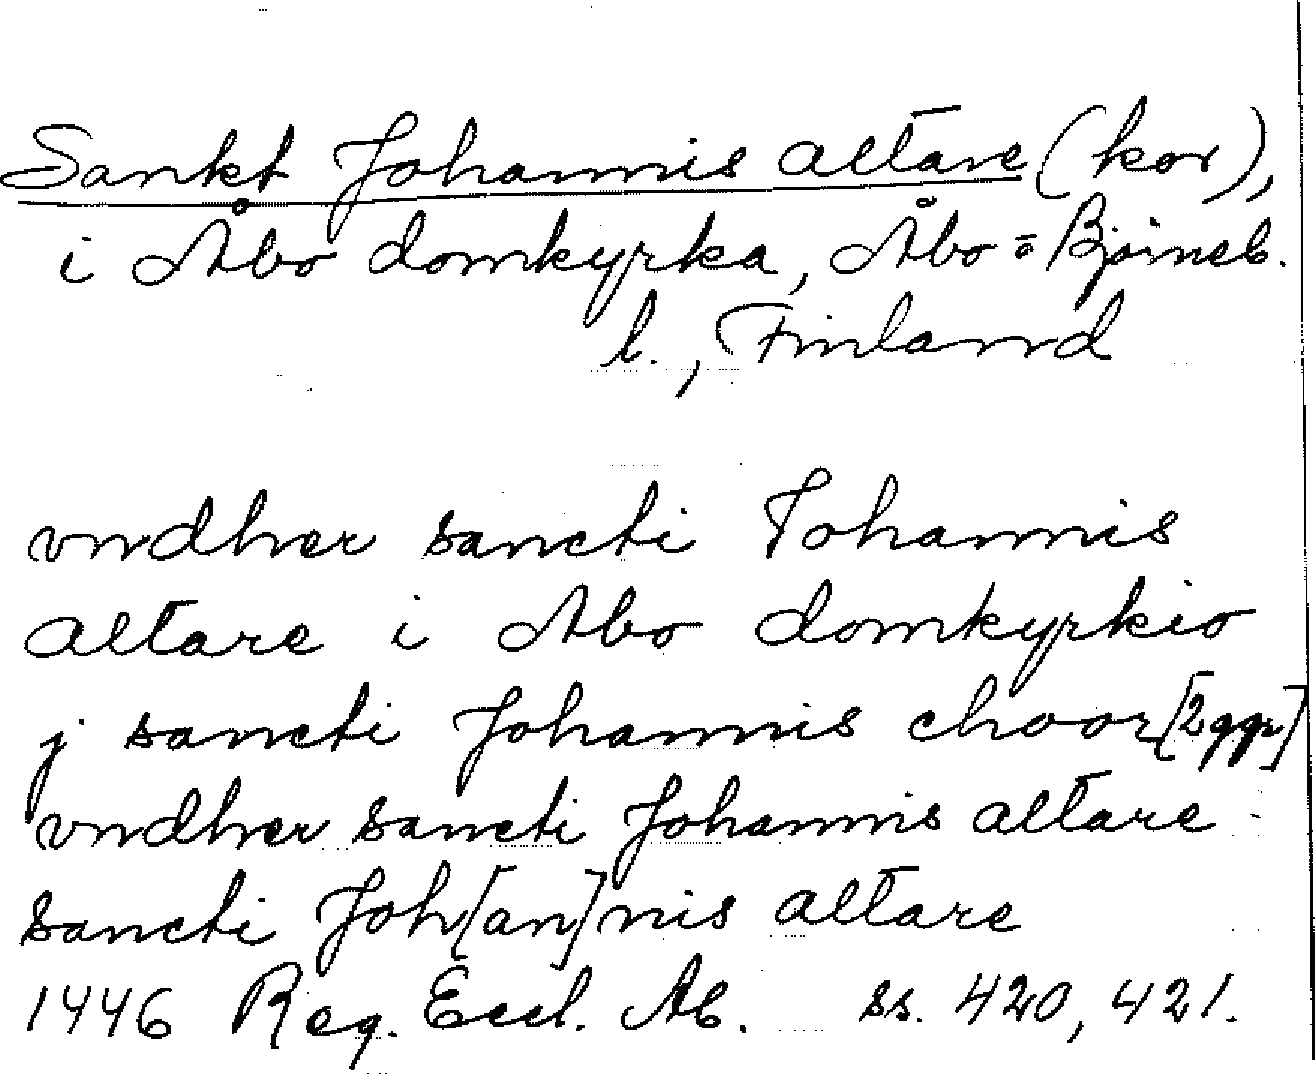 Sankt Johannis altare (kor),
i Åbo domkyrka, Åbo=Björneb.
l., Finland
vndher sancti Johannis
altare i Abo domkyrkio
j sancti Johannis choor [2 ggr]
vndher sancti Johannis altare
sancti Joh[an]nis altare
1446 Reg. Eccl. Ab. ss. 420, 421.